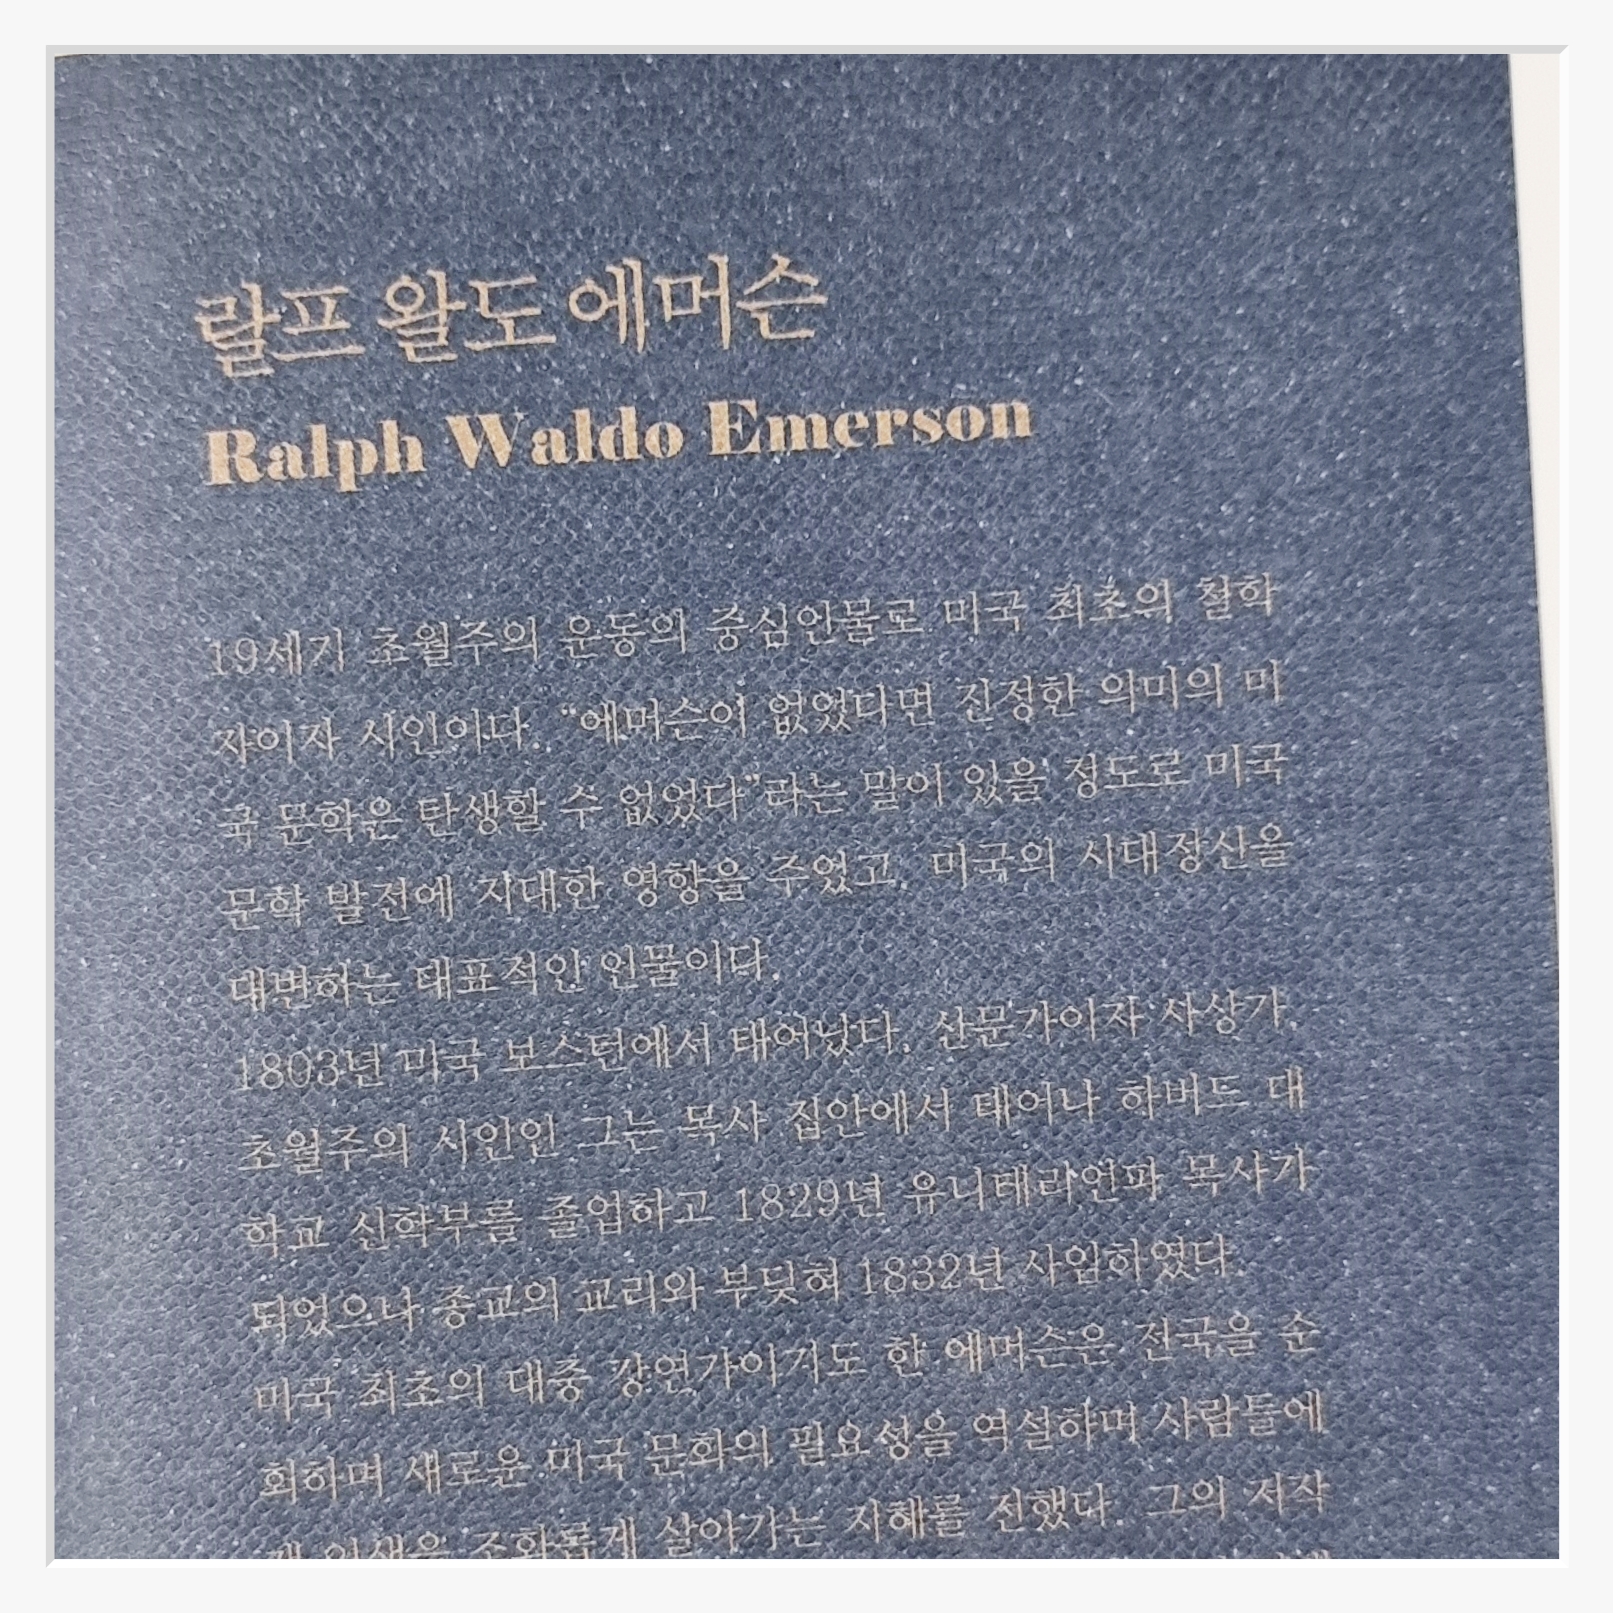 랄프 왈도 에머슨
Ralph Waldo Emerson
19세기 초월주의 운동의 중심인물로 미국 최초의 철학
자이자 시인이다. “에머슨이 없었다면 진정한 의미의 미
국 문학은 탄생할 수 없었다”라는 말이 있을 정도로 미국
문학 발전에 지대한 영향을 주었고, 미국의 시대정신을
대변하는 대표적인 인물이다.
1803년 미국 보스턴에서 태어났다. 산문가이자 사상가,
초월주의 시인인 그는 목사 집안에서 태어나 하버드 대
학교 신학부를 졸업하고 1829년 유니테리언파 목사가
되었으나 종교의 교리와 부딪혀 1832년 사임하였다.
미국 최초의 대중 강연가이기도 한 에머슨은 전국을 순
회하며 새로운 미국 문화의 필요성을 역설하며 사람들에
게 인생을 조화롭게 살아가는 지혜를 전했다. 그의 저작